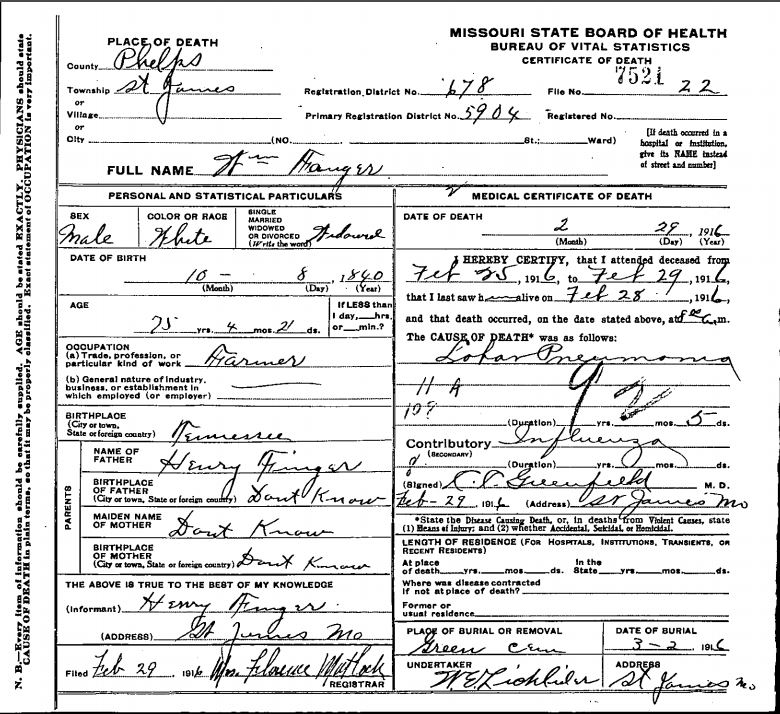 MISSOURI STATE BOARD OF HEALTH
BUREAU OF VITAL STATISTICS
CERTIFICATE OF DEATH
7521
PLACE OF DEATH
County Phelps
Township St James
or
Village
or
City (NO. St.; Ward)
Registration District No. 678 File No. 22
Primary Registration District No. 5904 Registered No.
[If death occurred in a hospital or institution, give its NAME instead of street and number]
FULL NAME Wm
PERSONAL AND STATISTICAL PARTICULARS
SEX Male
COLOR OR RACE White
SINGLE MARRIED WIDOWED OR DIVORCED (Write the word) Widowed
DATE OF BIRTH
10 - 8, 1840
(Month) (Day) (Year)
AGE
75 yrs. 4 mos. 21 ds.
If LESS than 1 day, hrs. or min.?
OCCUPATION
(a) Trade, profession, or particular kind of work Farmer
(b) General nature of industry, business, or establishment in which employed (or employer)
BIRTHPLACE
(City or town, State or foreign country) Tennessee
PARENTS
NAME OF FATHER Henry Finger
BIRTHPLACE OF FATHER (City or town, State or foreign country) Dont Know
MAIDEN NAME OF MOTHER Dont Know
BIRTHPLACE OF MOTHER (City or town, State or foreign country) Dont Know
THE ABOVE IS TRUE TO THE BEST OF MY KNOWLEDGE
(Informant) Henry Finger
(ADDRESS) St James Mo
Filed Feb 29, 1916 Mrs. Florence Matlock
REGISTRAR
MEDICAL CERTIFICATE OF DEATH
DATE OF DEATH
2 29, 1916
(Month) (Day) (Year)
I HEREBY CERTIFY, that I attended deceased from
Feb 25, 1916, to Feb 29, 1916,
that I last saw h alive on Feb 28, 1916,
and that death occurred, on the date stated above, at m.
The CAUSE OF DEATH* was as follows:
Lobar Pneumonia
11 A 92
109
(Duration) yrs. mos. 5 ds.
Contributory Influenza
(SECONDARY)
(Duration) yrs. mos. ds.
(Signed) Greenfield M. D.
Feb-29 1916 (Address) St James Mo
*State the Disease Causing Death, or, in deaths from Violent Causes, state
(1) Means of Injury; and (2) whether Accidental, Suicidal, or Homicidal.
LENGTH OF RESIDENCE (FOR HOSPITALS, INSTITUTIONS, TRANSIENTS, OR RECENT RESIDENTS)
At place of death yrs. mos. ds. In the State yrs. mos. ds.
Where was disease contracted
if not at place of death?
Former or
usual residence
PLACE OF BURIAL OR REMOVAL
Green Cem
DATE OF BURIAL
3-2, 1916
UNDERTAKER
W.E. Licklider
ADDRESS
St James Mo
N. B.—Every item of information should be carefully supplied. AGE should be stated EXACTLY. PHYSICIANS should state
CAUSE OF DEATH in plain terms, so that it may be properly classified. Exact statement of OCCUPATION is very important.